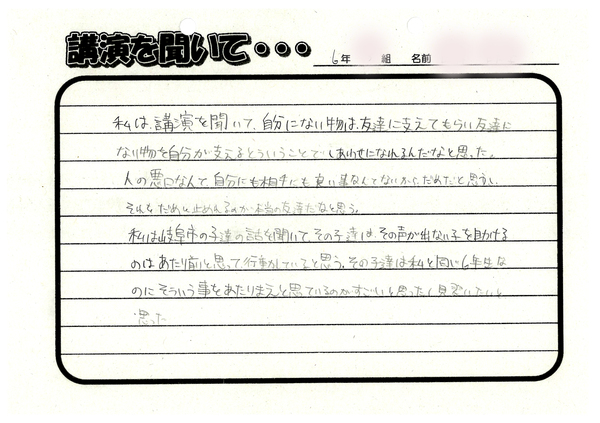 講演を聞いて・・・
6年 組 名前
私は、講演を聞いて、自分にない物は、友達に支えてもらい友達に
ない物を自分が支えるとういうことで、しあわせになれるんだなと思った。
人の悪口なんて、自分にも相手にも良い事なんてないから、だめだと思うし、
それを、だめと止めれるのが本当の友達だなと思う。
私は岐阜市の子達の話を聞いて、その子達は、その声が出ない子を助ける
のはあたり前と思って行動していると思う。その子達は私と同じ6年生な
のにそういう事をあたりまえと思っているのがすごいと思ったし見習いたいと
思った